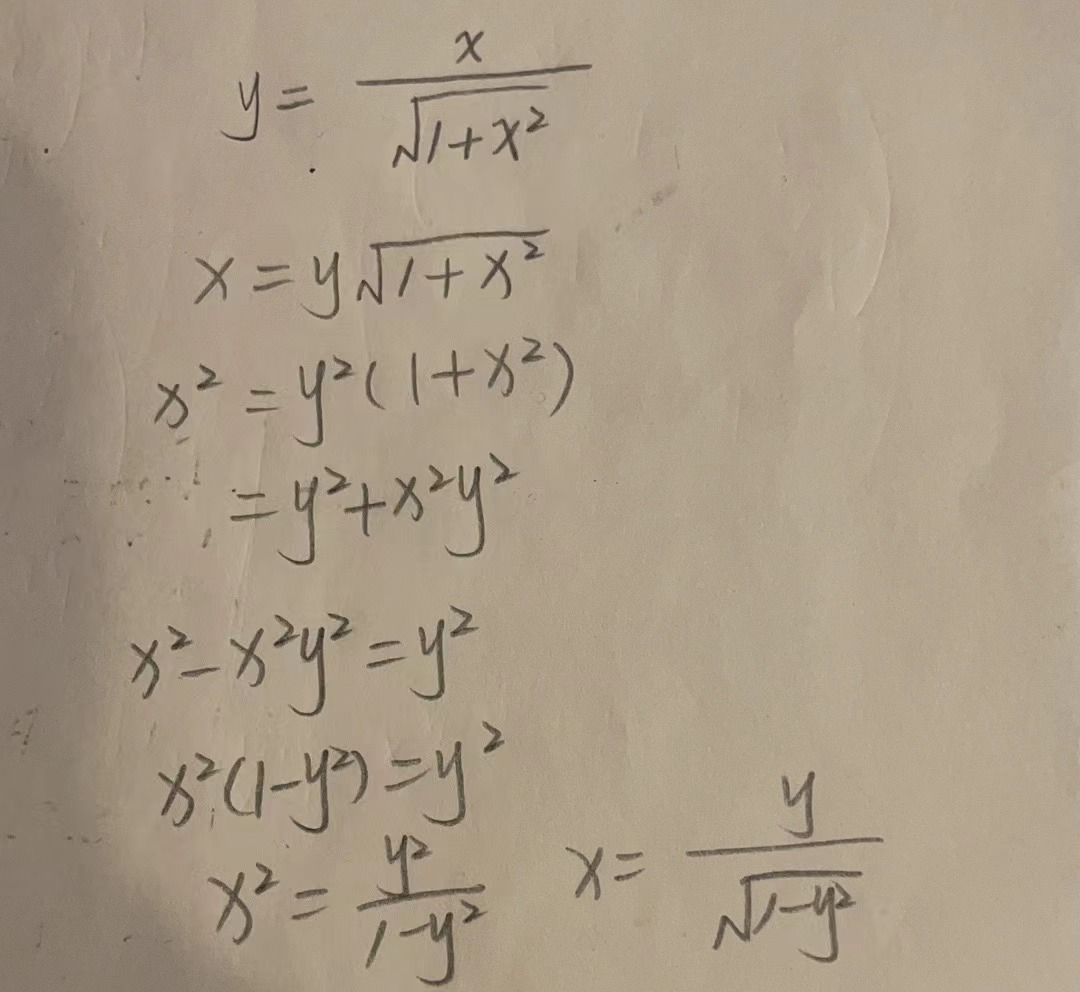 y = x / √(1+x²)
x = y√(1+x²)
x² = y²(1+x²)
= y²+x²y²
x²-x²y² = y²
x²(1-y²) = y²
x² = y² / (1-y²)    x = y / √(1-y²)